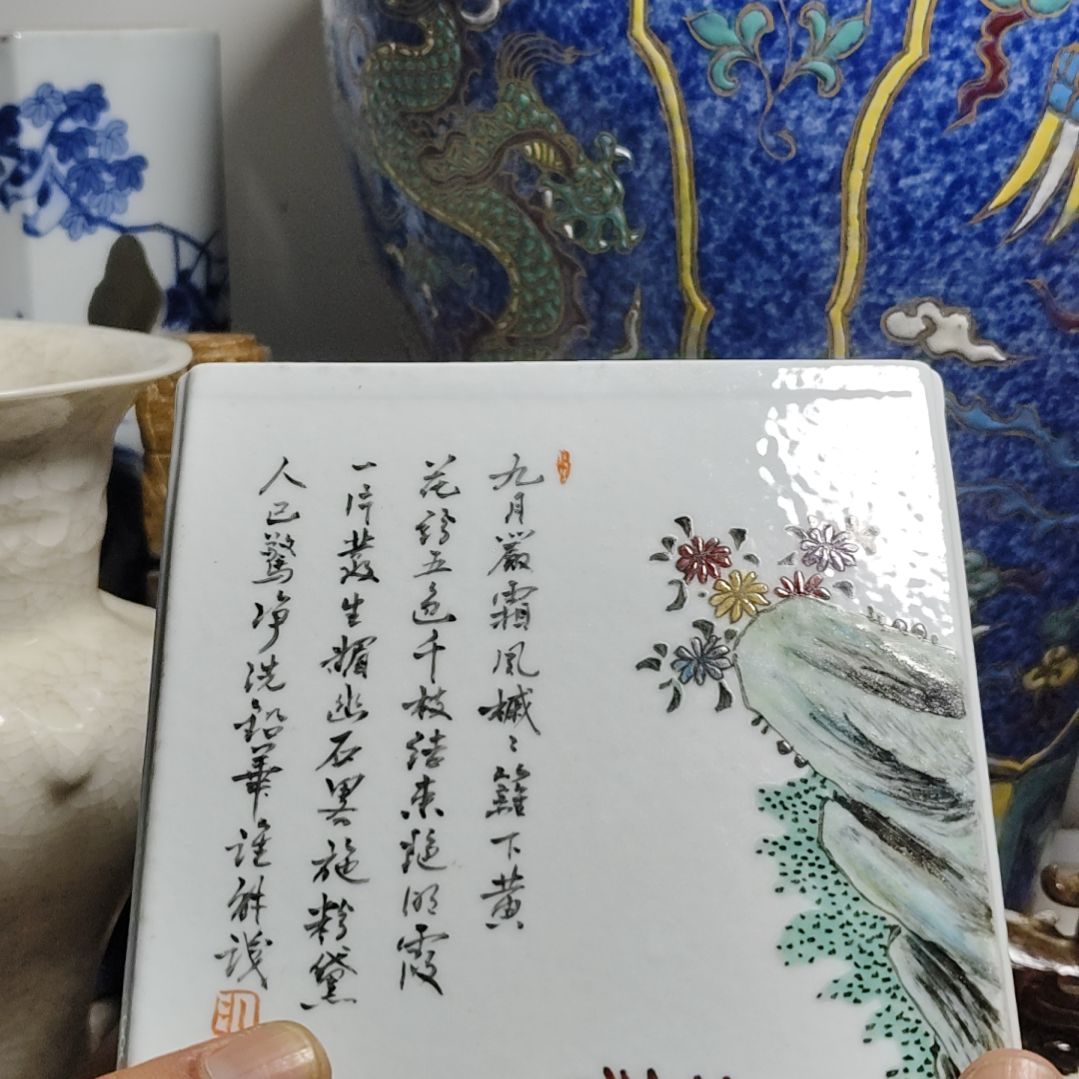 九月嚴霜風槭〻籬下黃
花五色千枝結束隨明霞
一片叢生媚幽石畧施粉黛
人已驚净洗鉛華誰解識